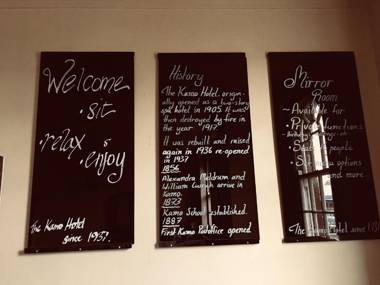 Welcome
• sit
• relax
• enjoy
The Kamo Hotel
since 1937.
History
The Kamo Hotel, origin-
ally opened as a two-story
hotel in 1905. It was
then destroyed by fire in
the year 1917
It was rebuilt and raised
again in 1936 re-opened
in 1937
1856
Alexandra Meldrum and
William Carruth arrive in
Kamo.
1873
Kamo School established.
1887
First Kamo PostOffice opened
Mirror
Room
~ Available for
Private functions
people
menu options
and more
The Kamo Hotel since